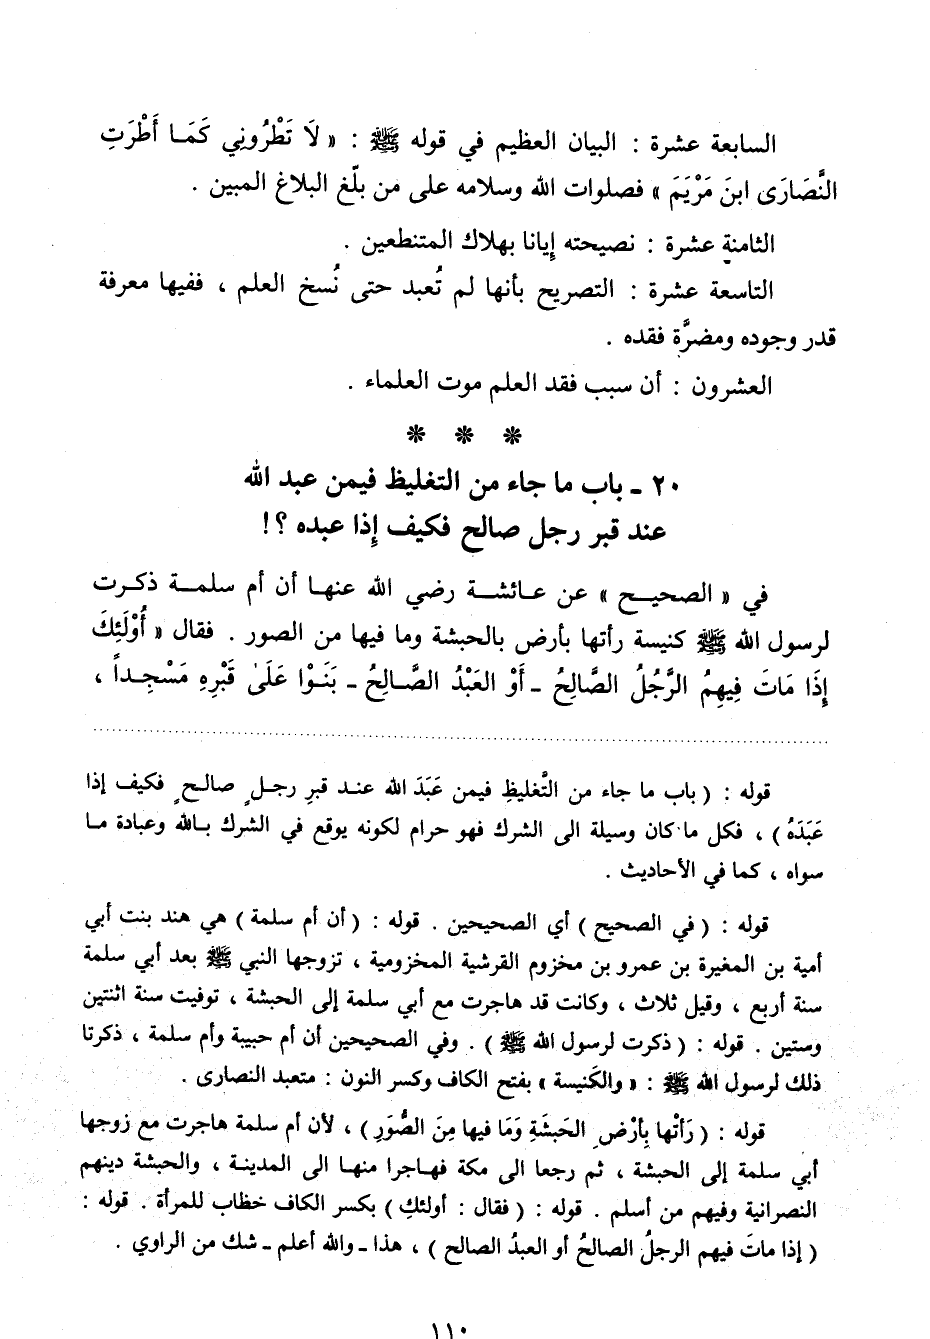 السابعة عشرة : البيان العظيم في قوله ﷺ : « لَا تَطْرُونِي كَمَـا أَطْرَتِ
النَّصَارَى ابنَ مَرْيَمَ » فصلوات الله وسلامه على من بلّغ البلاغ المبين .
الثامنة عشرة : نصيحته إيانا بهلاك المتنطعين .
التاسعة عشرة : التصريح بأنها لم تُعبد حتى نُسخ العلم ، ففيها معرفة
قدر وجوده ومضرَّة فقده .
العشرون : أن سبب فقد العلم موت العلماء .
* * *
٢٠ ـ باب ما جاء من التغليظ فيمن عبد الله
عند قبر رجل صالح فكيف إذا عبده ؟!
في « الصحيـح » عن عـائشـة رضي الله عنهـا أن أم سلمـة ذكـرت
لرسول الله ﷺ كنيسة رأتها بأرض بالحبشة وما فيها من الصور . فقال « أُوْلَئِكَ
إِذَا مَاتَ فِيهِمُ الرَّجُلُ الصَّالِحُ ـ أَوْ العَبْدُ الصَّـالِحُ ـ بَنَـوْا عَلَىٰ قَبْرِهِ مَسْجِـداً ،
قوله : ( باب ما جاء من التَّغليظِ فيمن عَبَدَ الله عنـد قبرِ رجـلٍ صالـحٍ فكيف إذا
عَبَدَهُ ) ، فكل ما كان وسيلة الى الشرك فهو حرام لكونه يوقع في الشرك بـالله وعبادة مـا
سواه ، كما في الأحاديث .
قوله : ( في الصحيح ) أي الصحيحين . قوله : ( أن أم سلمة ) هي هند بنت أبي
أمية بن المغيرة بن عمرو بن مخزوم القرشية المخزومية ، تزوجها النبي ﷺ بعد أبي سلمة
سنة أربع ، وقيل ثلاث ، وكانت قد هاجرت مع أبي سلمة إلى الحبشة ، توفيت سنة اثنتين
وستين . قوله : ( ذكرت لرسول الله ﷺ ) . وفي الصحيحين أن أم حبيبة وأم سلمة ، ذكرتا
ذلك لرسول الله ﷺ : « والكَنيسة » بفتح الكاف وكسر النون : متعبد النصارى .
قوله : ( رَأتْها بِأرْضِ الحَبشَةِ وَمَا فيها مِنَ الصُّوَرِ ) ، لأن أم سلمة هاجرت مع زوجها
أبي سلمة إلى الحبشة ، ثم رجعا الى مكة فهـاجرا منهـا الى المدينـة ، والحبشة دينهم
النصرانية وفيهم من أسلم . قوله : ( فقال : أولئكِ ) بكسر الكاف خطاب للمرأة . قوله :
( إذا ماتَ فيهم الرجلُ الصالحُ أو العبدُ الصالح ) ، هذا ـ والله أعلم ـ شك من الراوي .
١١٠